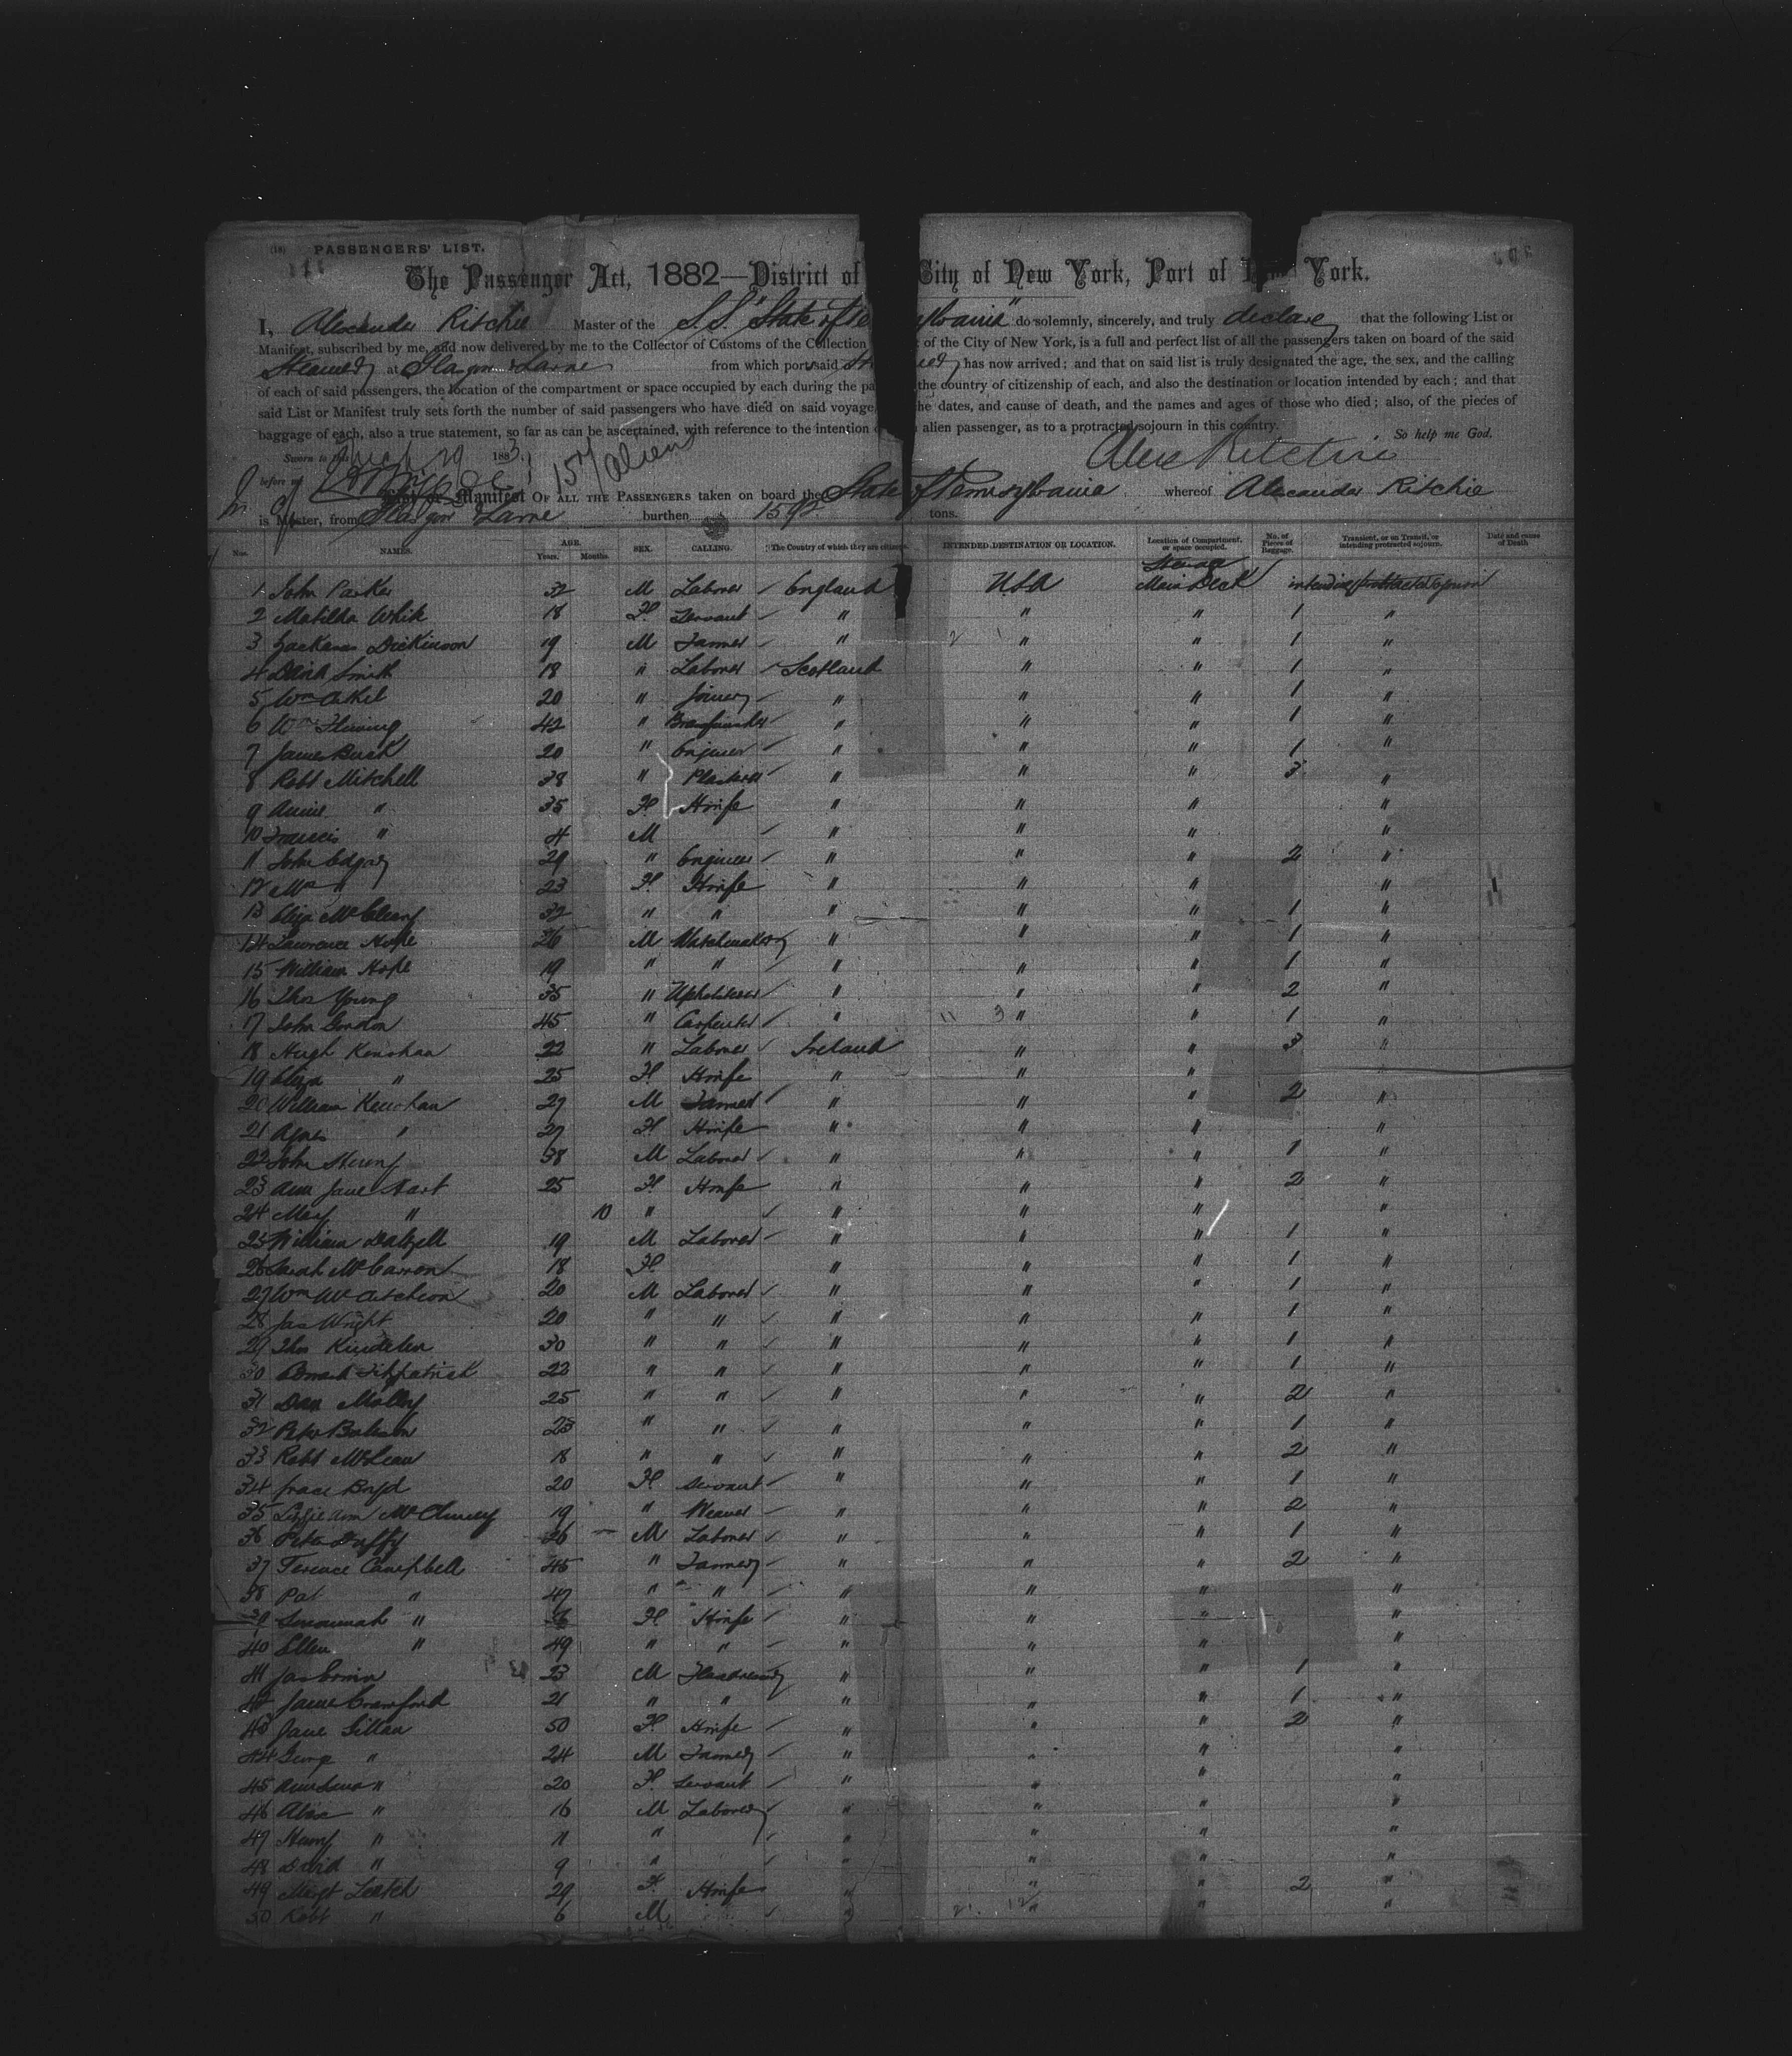 (18) PASSENGERS' LIST.
The Passenger Act, 1882—District of City of New York, Port of New York.
I, Alexander Ritchie Master of the S.S. "State of Pe sylvania" do solemnly, sincerely, and truly declare that the following List or
Manifest, subscribed by me, and now delivered by me to the Collector of Customs of the Collection of the City of New York, is a full and perfect list of all the passengers taken on board of the said
Steamer at Glasgow & Larne from which port said has now arrived; and that on said list is truly designated the age, the sex, and the calling
of each of said passengers, the location of the compartment or space occupied by each during the pa the country of citizenship of each, and also the destination or location intended by each; and that
said List or Manifest truly sets forth the number of said passengers who have died on said voyage, the dates, and cause of death, and the names and ages of those who died; also, of the pieces of
baggage of each, also a true statement, so far as can be ascertained, with reference to the intention alien passenger, as to a protracted sojourn in this country.
So help me God.
Sworn to this 29 1883 157 Aliens Alex Ritchie
before me
List or Manifest OF ALL THE PASSENGERS taken on board the State of Pennsylvania whereof Alexander Ritchie
is Master, from Glasgow & Larne burthen 1592 tons.
Nos. NAMES. AGE. Years. Months. SEX. CALLING. The Country of which they are citizens. INTENDED DESTINATION OR LOCATION. Location of Compartment, or space occupied. No. of Pieces of Baggage. Transient, or on Transit, or intending protracted sojourn. Date and cause of Death
Steerage
1 John Parker 32 M Laborer England USA Main Deck intending protracted sojourn
2 Matilda White 18 F. Servant " " " 1 "
3 Zacharias Dickinson 19 M Farmer " " " 1 "
4 David Smith 18 " Laborer Scotland " " 1 "
5 Wm 20 " Joiner " " " 1 "
6 Wm Fleming 42 " Brassfounder " " " 1 "
7 James 20 " Engineer " " " 1 "
8 Robt Mitchell 38 " Plasterer " " " 3 "
9 Annie " 35 F. H wife " " " "
10 Francis " 4 M " " " "
11 John Edgar 29 " Engineer " " " 2 "
12 Mrs " 23 F. H wife " " " "
13 Eliza McCleary 32 " " " " " 1 "
14 Lawrence Hope 26 M Watchmaker " " " 1 "
15 William Hope 19 " " " " " 1 "
16 Thos Young 35 " Upholsterer " " " 2 "
17 John Gordon 45 " Carpenter " " " 1 "
18 Hugh Kenohan 22 " Laborer Ireland " " 3 "
19 Eliza " 25 F. H wife " " " "
20 William Kenohan 27 M Farmer " " " 2 "
21 Agnes " 27 F H wife " " " "
22 John 38 M Laborer " " " 1 "
23 Ann Jane Hart 25 F. H wife " " " 2 "
24 Mary " 10 " " " " "
25 William Dalzell 19 M Laborer " " " 1 "
26 Sarah McCarron 18 F. " " " 1 "
27 Wm McCutcheon 20 M Laborer " " " 1 "
28 Jas Wright 20 " " " " " 1 "
29 Thos 30 " " " " " 1 "
30 Edward Fitzpatrick 22 " " " " " 1 "
31 Dan Molloy 25 " " " " " 2 "
32 Peter 23 " " " " " 1 "
33 Robt McLean 18 " " " " " 2 "
34 Grace Boyd 20 F. Servant " " " 1 "
35 Lizzie Ann 19 " Weaver " " " 2 "
36 Peter Duffy 26 M Laborer " " " 1 "
37 Terence Campbell 45 " Farmer " " " 2 "
38 Pat " 47 " " " " " "
39 Susannah " F. H wife " " " "
40 Ellen " 49 " " " " " "
41 Jas 23 M " " " 1 "
42 James Crawford 21 " " " " " 1 "
43 Jane Gillan 50 F. H wife " " " 2 "
44 George " 24 M Farmer " " " "
45 " 20 F. Servant " " " "
46 " 16 M Laborer " " " "
47 Henry " 11 " " " " "
48 David " 9 " " " " "
49 Margt Leetch 29 F. H wife " " " 2 "
50 Robt " 6 M " " " "